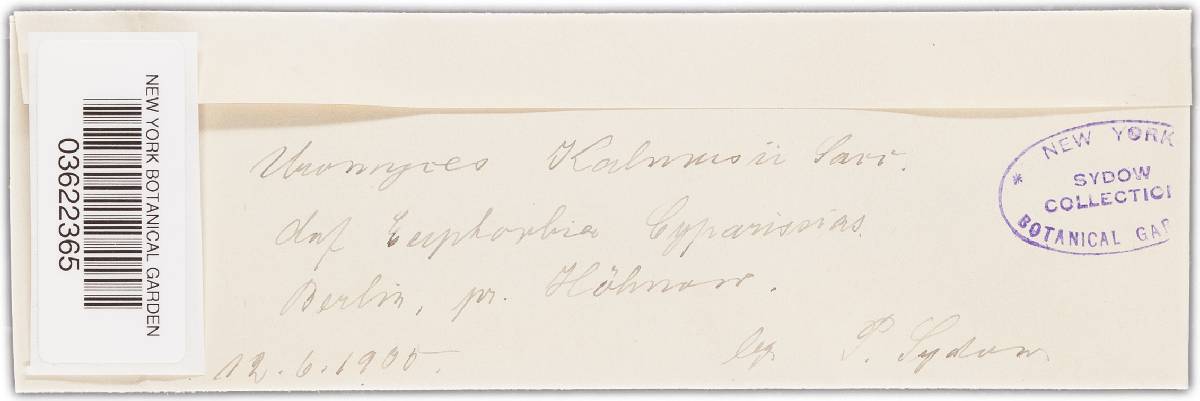 NEW YORK BOTANICAL GARDEN
03622365
Uromyces Kalmusii Sacc.
auf Euphorbia Cyparissias.
Berlin, pr. Höhnow.
12.6.1905.
leg. P. Sydow
* NEW YORK
SYDOW
COLLECTION
BOTANICAL GAR